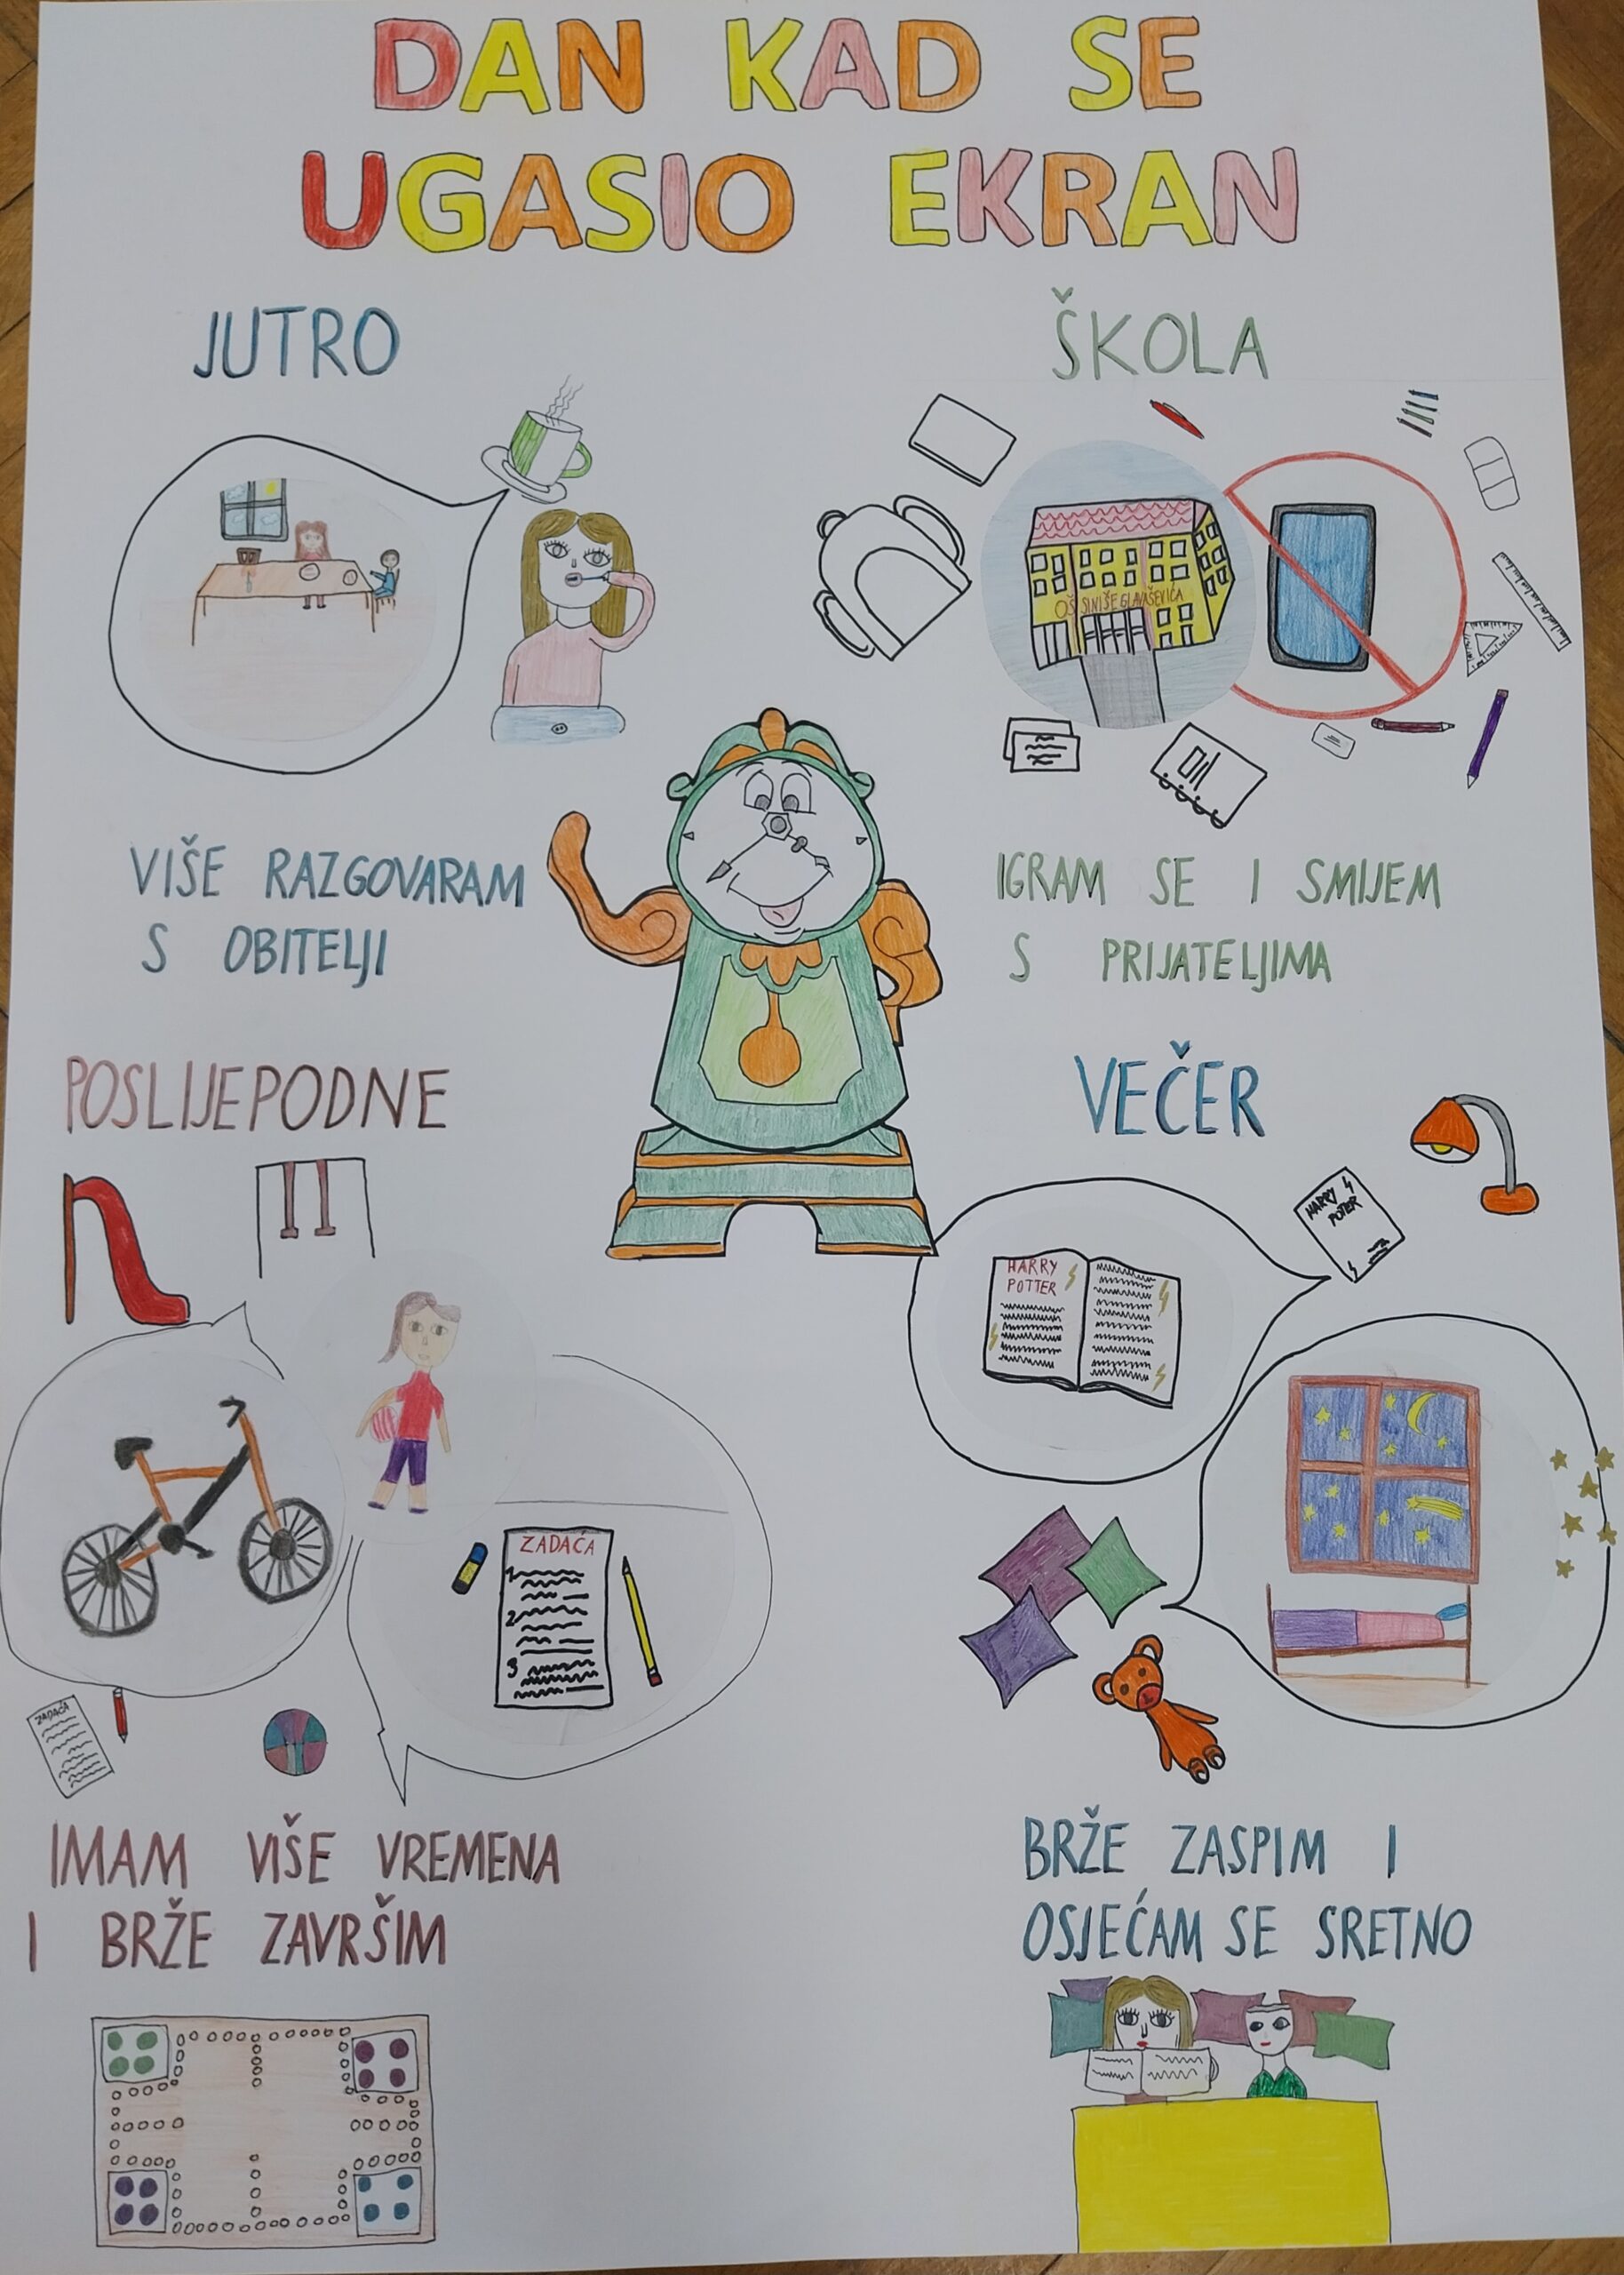 DAN KAD SE
UGASIO EKRAN
JUTRO
ŠKOLA
OŠ SINIŠE GLAVAŠEVIĆA
VIŠE RAZGOVARAM
S OBITELJI
IGRAM SE I SMIJEM
S PRIJATELJIMA
POSLIJEPODNE
VEČER
HARRY
POTER
HARRY
POTTER
ZADAĆA
1.
2.
3
ZADAĆA
IMAM VIŠE VREMENA
I BRŽE ZAVRŠIM
BRŽE ZASPIM I
OSJEĆAM SE SRETNO